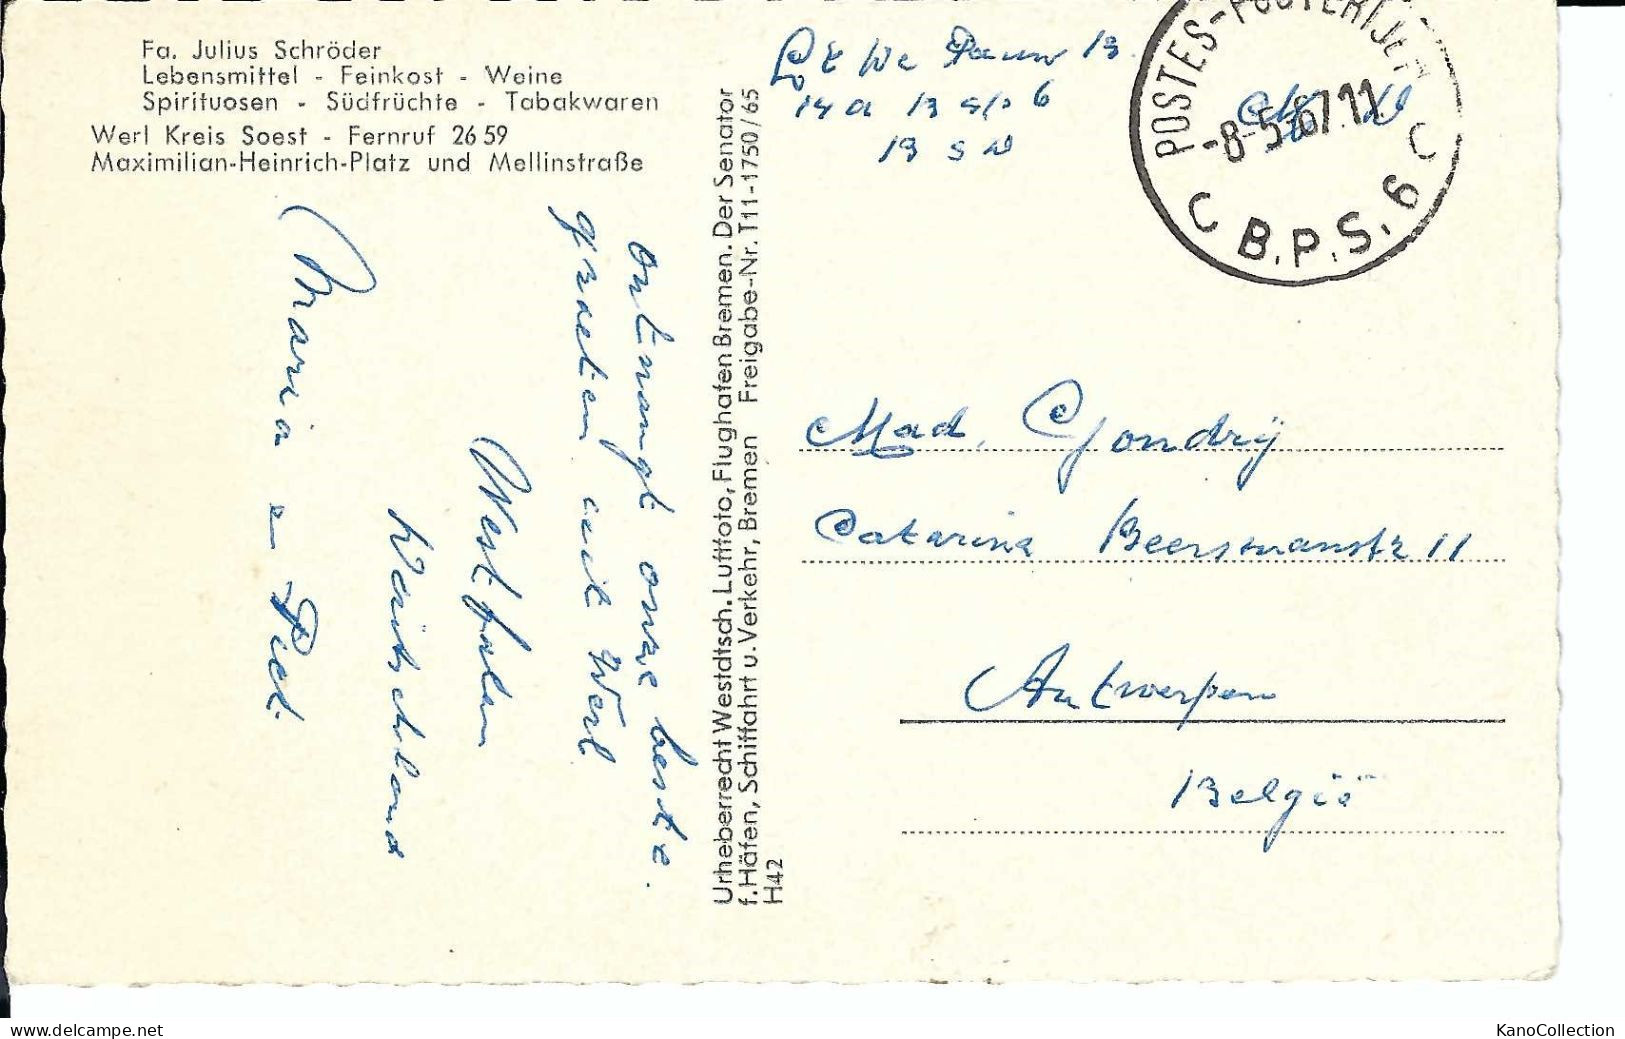 Fa. Julius Schröder
Lebensmittel - Feinkost - Weine
Spirituosen - Südfrüchte - Tabakwaren
Werl Kreis Soest - Fernruf 26 59
Maximilian-Heinrich-Platz und Mellinstraße
ontvangt onze beste
groeten uit Werl
Westfalen
Maria en
Urheberrecht Westdtsch. Luftfoto, Flughafen Bremen. Der Senator
f. Häfen, Schiffahrt u. Verkehr, Bremen Freigabe-Nr. T11-1750/65
H42
13
14 a 13 6
13
POSTES-POSTERIJEN
-8-5-67 11
C B.P.S. 6 C
Mad. Gondrÿ
Catarina Beersmanstr 11
Antwerpen
België
KanoCollection
www.delcampe.net